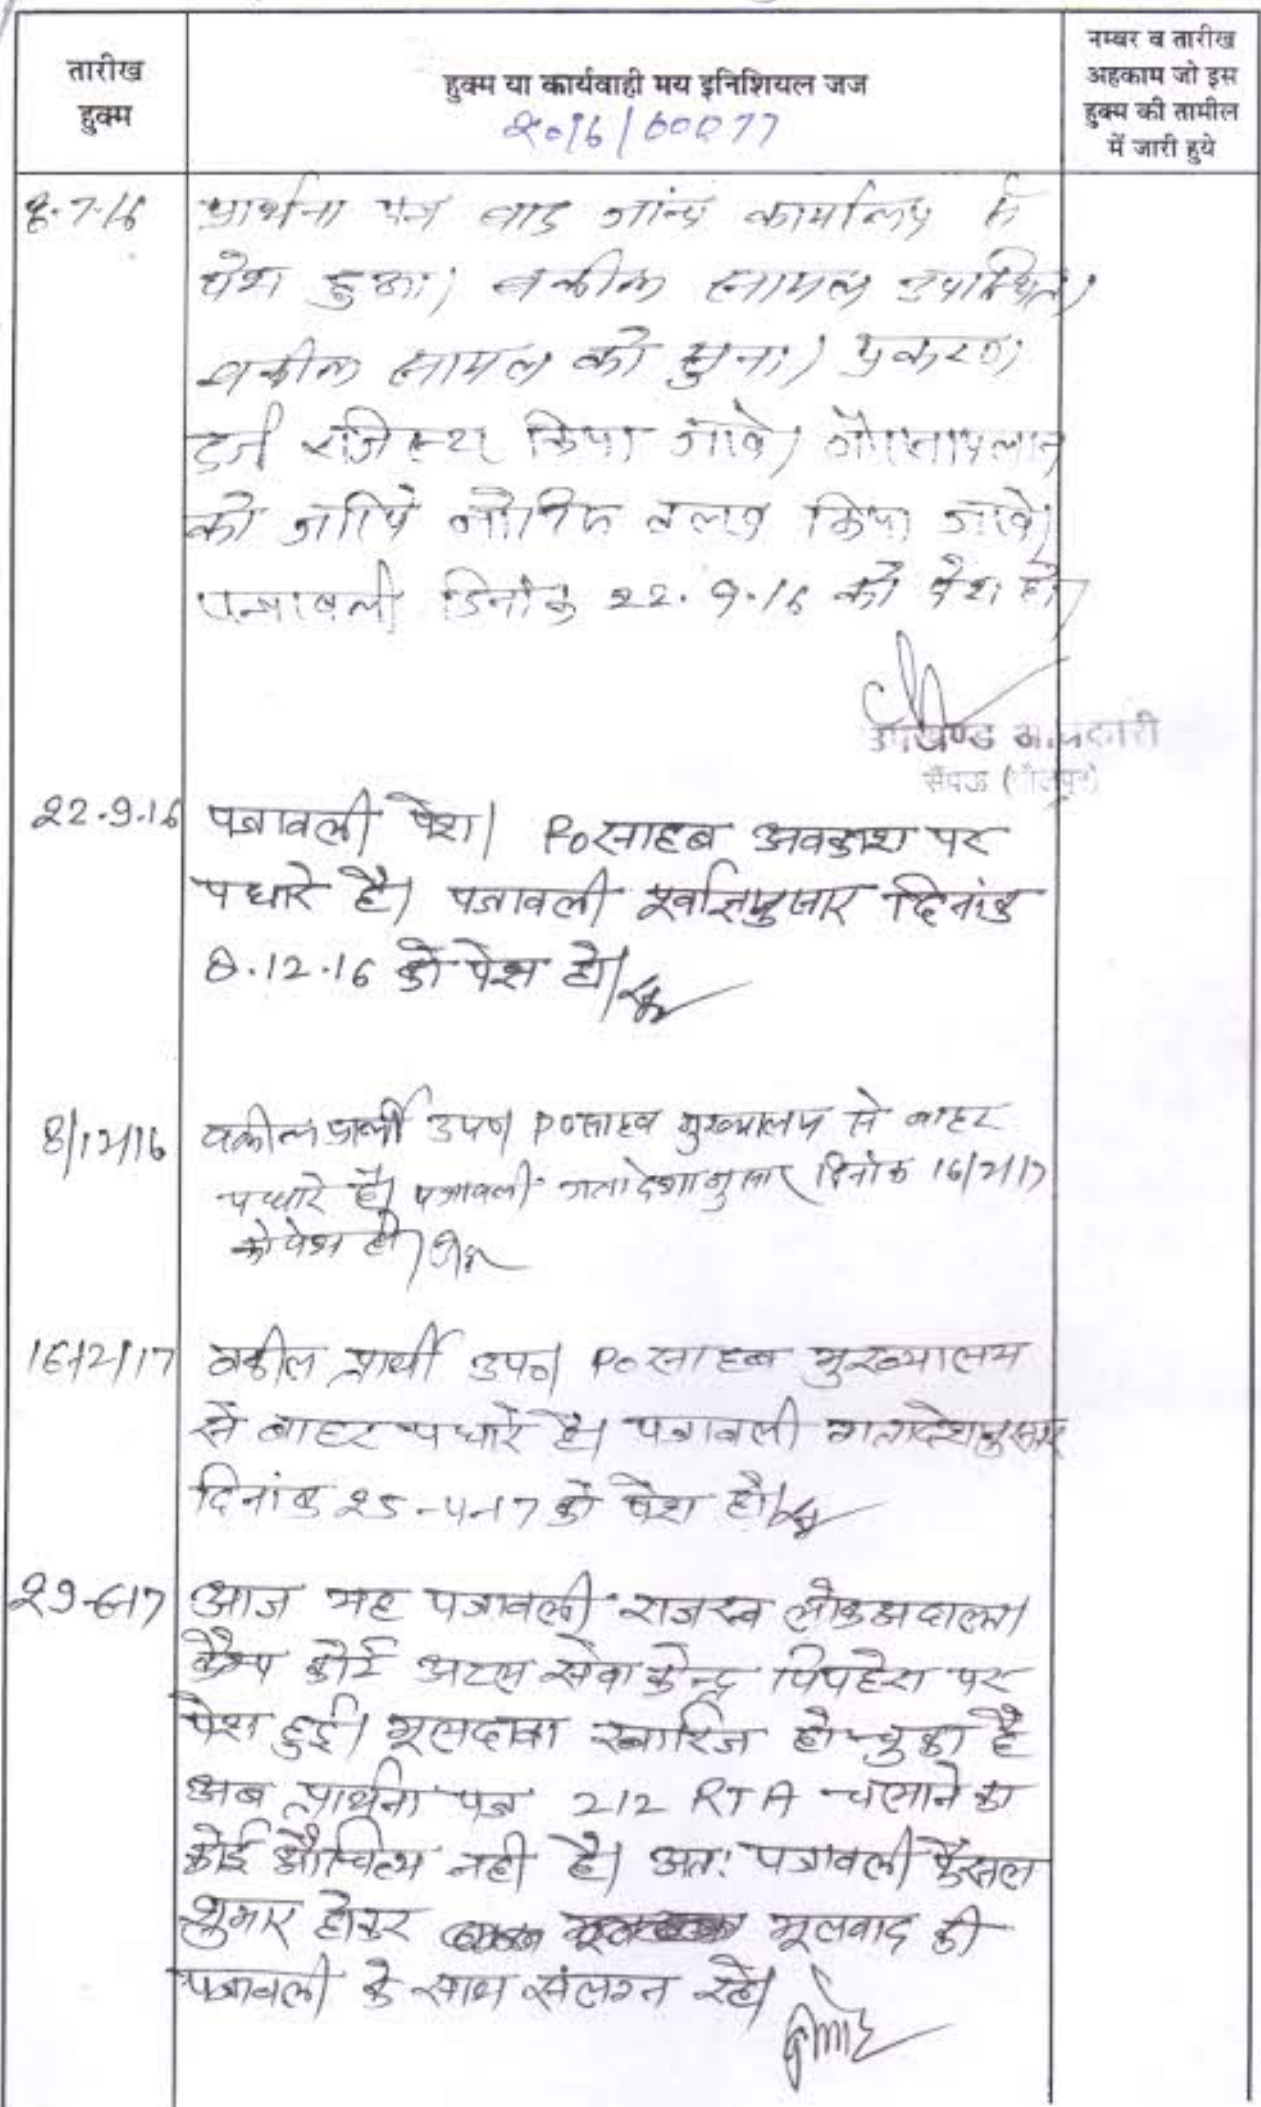 तारीख
हुक्म
हुक्म या कार्यवाही मय इनिशियल जज
2016/00077
नम्बर व तारीख
अहकाम जो इस
हुक्म की तामील
में जारी हुये
8-7-16
प्रार्थना पत्र बाद जांच कार्यालय से
पेश हुआ। वकील सायल उपस्थित।
वकील सायल को सुना। प्रकरण
दर्ज रजिस्टर किया जावे। गैरसायलान
को जरिये नोटिस तलब किया जावे।
पत्रावली दिनांक 22.9.16 को पेश हो।
उपखण्ड अधिकारी
सैंपऊ (धौलपुर)
22.9.16
पत्रावली पेश। PO साहब अवकाश पर
पधारे है। पत्रावली पूर्वाज्ञानुसार दिनांक
8.12.16 को पेश हो।
8/12/16
वकील प्रार्थी उप०। PO साहब मुख्यालय से बाहर
पधारे है। पत्रावली गतादेशानुसार दिनांक 16/2/17
को पेश हो।
16/2/17
वकील प्रार्थी उप०। PO साहब मुख्यालय
से बाहर पधारे है। पत्रावली गतादेशानुसार
दिनांक 25-4-17 को पेश हो।
29-6-17
आज यह पत्रावली राजस्व लोक अदालत
कैम्प कोर्ट अटल सेवा केन्द्र पिपहेरा पर
पेश हुई। मूलदावा खारिज हो चुका है
अब प्रार्थना पत्र 212 RTA चलाने का
कोई औचित्य नही है। अतः पत्रावली फैसल
शुमार होकर मूलवाद की
पत्रावली के साथ संलग्न रहे।